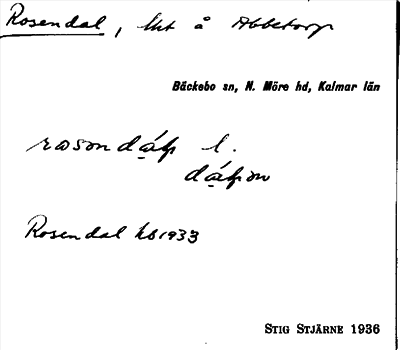 Rosendal, lht å Abbetorp
Bäckebo sn, N. Möre hd, Kalmar län
l.
Rosendal hb 1933
STIG STJÄRNE 1936